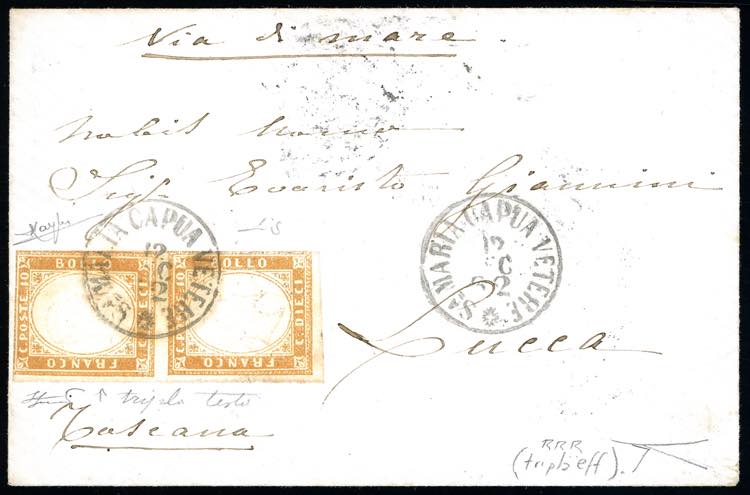 Via di mare
Nobil Uomo
Sigr Evaristo Giannini
Sª MARIA CAPUA VETERE
12
Sª MARIA CAPUA VETERE
12
C. POSTE 10
BOLLO
C. DIECI
FRANCO
C. POSTE 10
BOLLO
C. DIECI
FRANCO
Lucca
tripla testa
Toscana
RRR
(tripla eff).